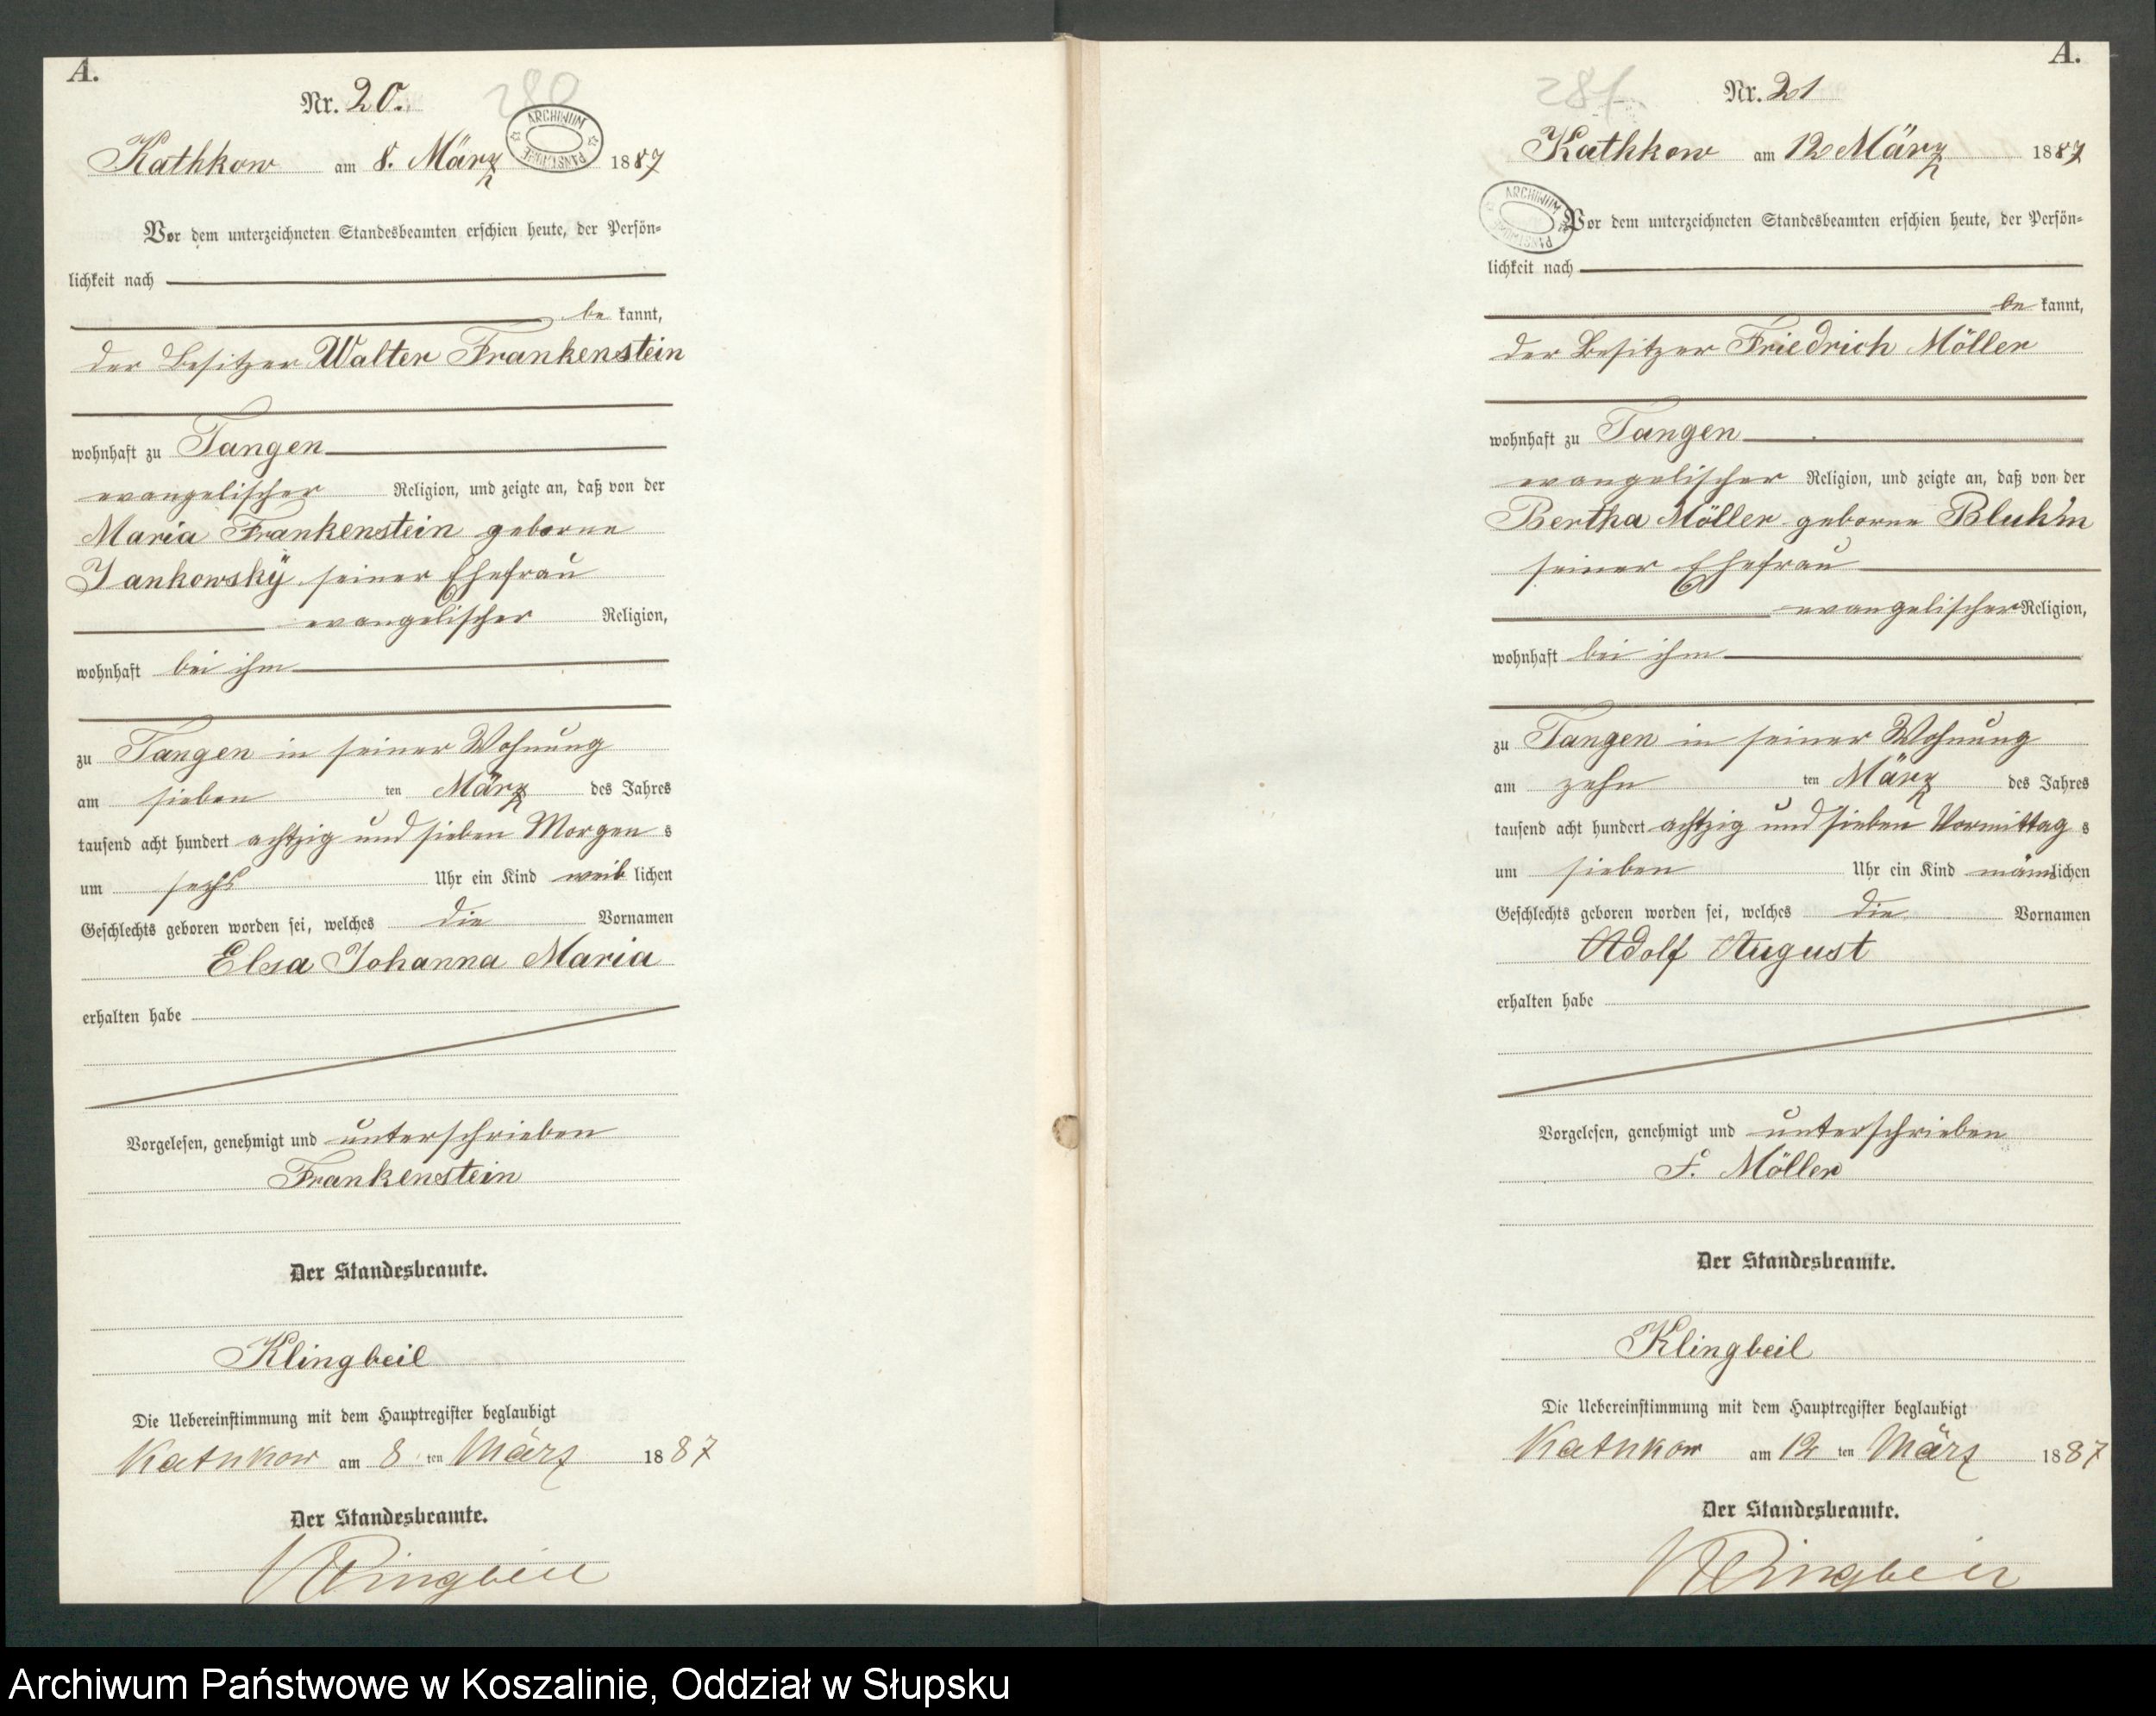 A.
Nr. 20.
280
ARCHIWUM PAŃSTWOWE
Kathkow am 8. März 1887
Vor dem unterzeichneten Standesbeamten erschien heute, der Persön=
lichkeit nach
be kannt,
der Besitzer Walter Frankenstein
wohnhaft zu Tangen
evangelischer Religion, und zeigte an, daß von der
Maria Frankenstein geborne
Jankowsky seiner Ehefrau
evangelischer Religion,
wohnhaft bei ihm
zu Tangen in seiner Wohnung
am sieben ten März des Jahres
tausend acht hundert achtzig und sieben Morgen s
um sechs Uhr ein Kind weib lichen
Geschlechts geboren worden sei, welches die Vornamen
Elsa Johanna Maria
erhalten habe
Vorgelesen, genehmigt und unterschrieben
Frankenstein
Der Standesbeamte.
Klingbeil
Die Uebereinstimmung mit dem Hauptregister beglaubigt
Kathkow am 8 ten März 1887
Der Standesbeamte.
Klingbeil
A.
Nr. 21
281
Kathkow am 12 März 1887
ARCHIWUM PAŃSTWOWE
Vor dem unterzeichneten Standesbeamten erschien heute, der Persön=
lichkeit nach
be kannt,
der Besitzer Friedrich Möller
wohnhaft zu Tangen
evangelischer Religion, und zeigte an, daß von der
Bertha Möller geborne Bluhm
seiner Ehefrau
evangelischer Religion,
wohnhaft bei ihm
zu Tangen in seiner Wohnung
am zehn ten März des Jahres
tausend acht hundert achtzig und sieben Vormittag s
um sieben Uhr ein Kind männlichen
Geschlechts geboren worden sei, welches die Vornamen
Adolf August
erhalten habe
Vorgelesen, genehmigt und unterschrieben
F. Möller
Der Standesbeamte.
Klingbeil
Die Uebereinstimmung mit dem Hauptregister beglaubigt
Kathkow am 12 ten März 1887
Der Standesbeamte.
Klingbeil
Archiwum Państwowe w Koszalinie, Oddział w Słupsku